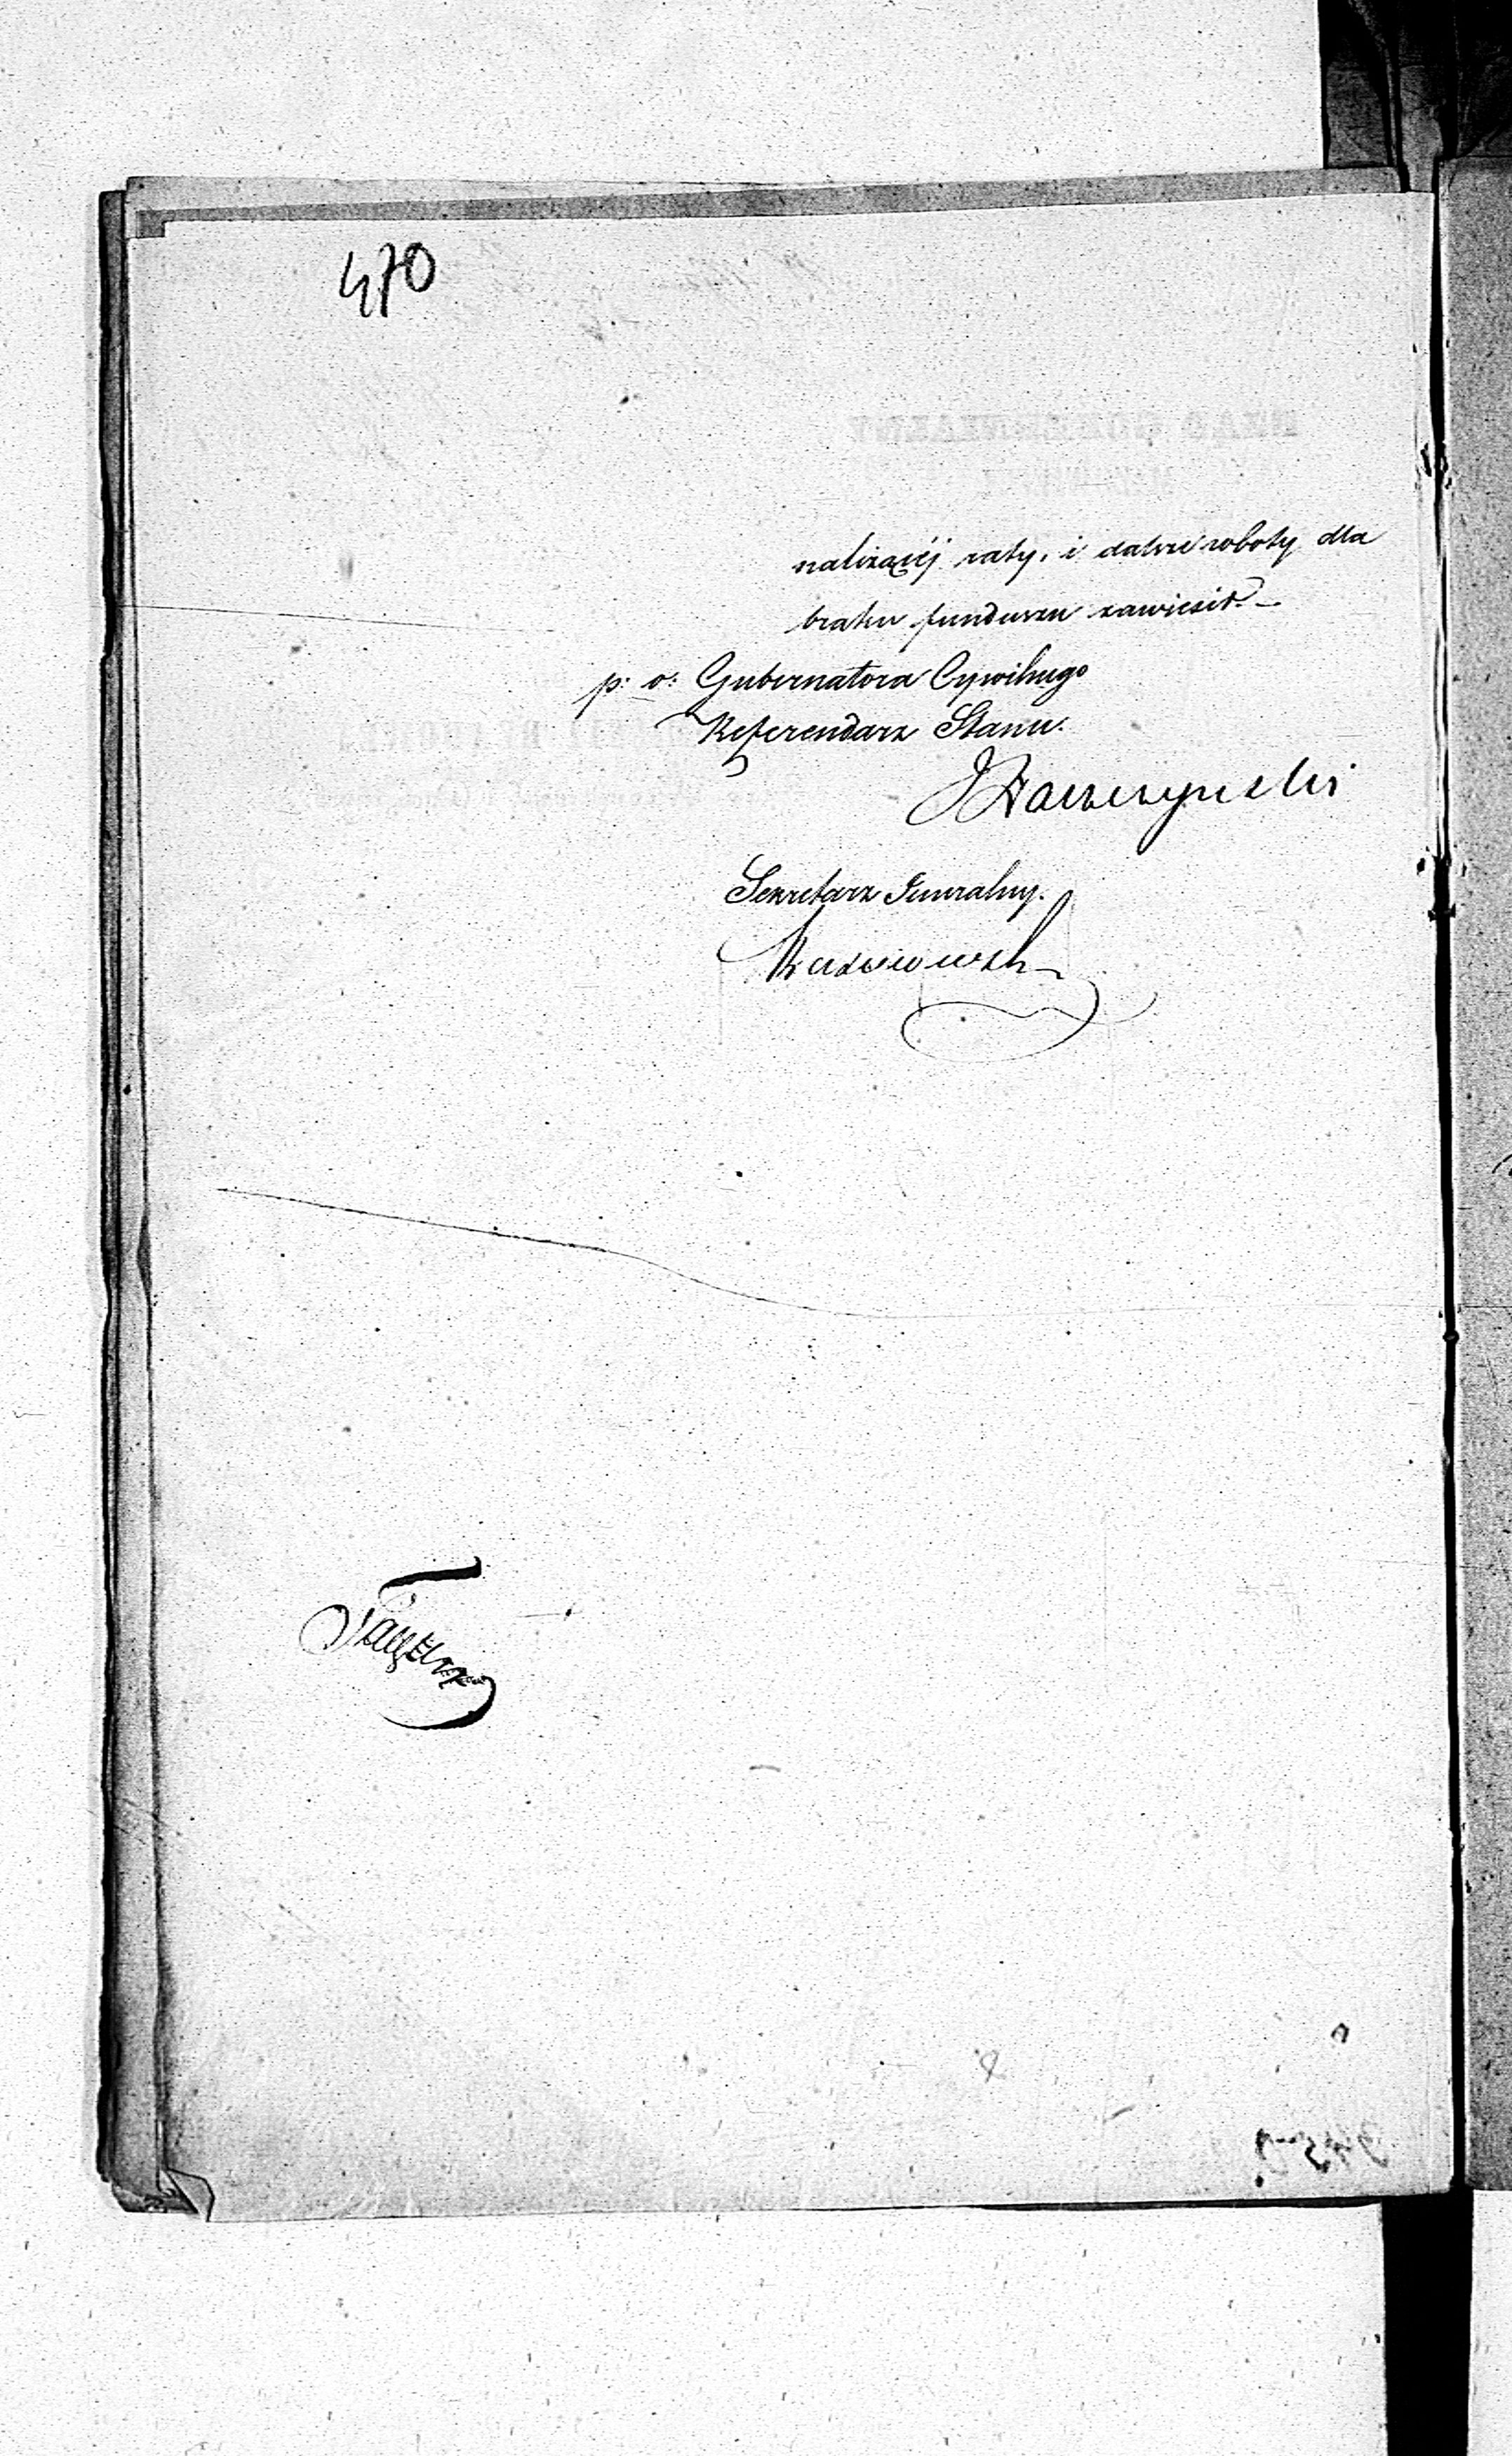 470
należącéj raty, i dalsze roboty dla
braku funduszu zawiesił.–
p: o: Gubernatora Cywilnego
Referendarz Stanu.
Sekretarz Jeneralny.